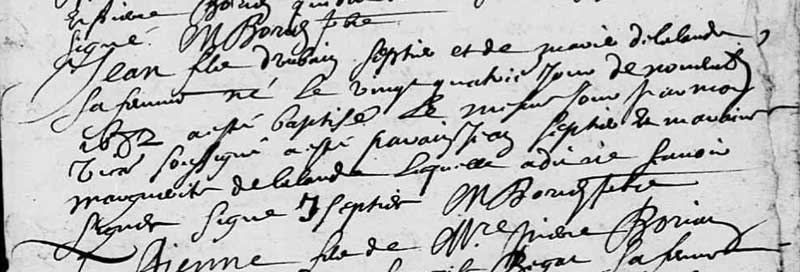 et pierre
signé. M Borie pbre
Jean fils d'urbain septier et de marie delalande
sa femme né le vingt quatrie jour de novemb
1682 a esté baptisé le mesme jour par moy
vicai soussigné a esté parain Jean septier et maraine
marguerite delalande laquelle a dit ne scavoir
signer signé J septier M Borie pbre
Etienne fils de Mre pierre Boriau
sa femme